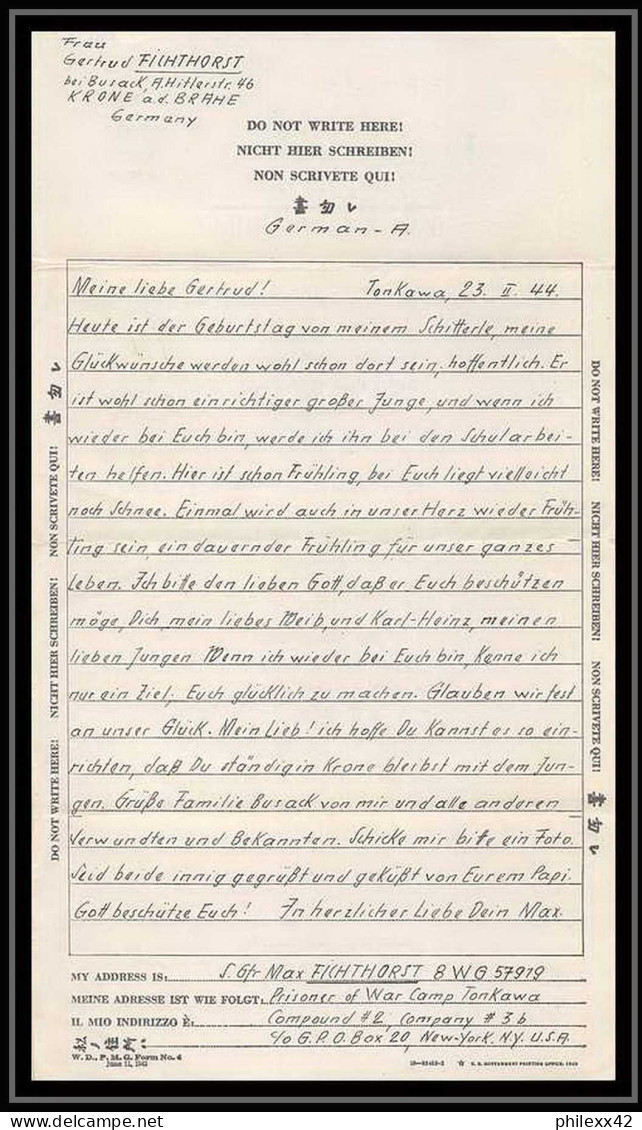 Frau
Gertrud FICHTHORST
bei Busack, A. Hitlerstr. 46
KRONE a.d. BRAHE
Germany
DO NOT WRITE HERE!
NICHT HIER SCHREIBEN!
NON SCRIVETE QUI!
書 勿 レ
German - A.
Meine liebe Gertrud! Tonkawa, 23. II. 44.
Heute ist der Geburtstag von meinem Schitterle, meine
Glückwünsche werden wohl schon dort sein, hoffentlich. Er
ist wohl schon ein richtiger großer Junge, und wenn ich
wieder bei Euch bin, werde ich ihn bei den Schularbei-
ten helfen. Hier ist schon Frühling, bei Euch liegt vielleicht
noch Schnee. Einmal wird auch in unser Herz wieder Früh-
ling sein, ein dauernder Frühling für unser ganzes
Leben. Ich bitte den lieben Gott, daß er Euch beschützen
möge, Dich, mein liebes Weib, und Karl-Heinz, meinen
lieben Jungen Wenn ich wieder bei Euch bin, Kenne ich
nur ein Ziel; Euch glücklich zu machen. Glauben wir fest
an unser Glück. Mein Lieb! ich hoffe Du Kannst es so ein-
richten, daß Du ständig in Krone bleibst mit dem Jun-
gen. Grüße Familie Busack von mir und alle anderen
Verwandten und Bekannten. Schicke mir bitte ein Foto.
Seid beide innig gegrüßt und geküßt von Eurem Papi.
Gott beschütze Euch! In herzlicher Liebe Dein Max.
DO NOT WRITE HERE! NICHT HIER SCHREIBEN! NON SCRIVETE QUI! 書 勿 レ
DO NOT WRITE HERE! NICHT HIER SCHREIBEN! NON SCRIVETE QUI! 書 勿 レ
MY ADDRESS IS: S. Gfr Max FICHTHORST 8 WG 57919
MEINE ADRESSE IST WIE FOLGT: Prisoner of War Camp Tonkawa
IL MIO INDIRIZZO È: Compound #2, Company #3b
私ノ住所: c/o G.P.O. Box 20, New-York, N.Y. U.S.A.
W. D., P. M. G. Form No. 4
June 11, 1943
☆ U. S. GOVERNMENT PRINTING OFFICE: 1943
delcampe.net
philexx42